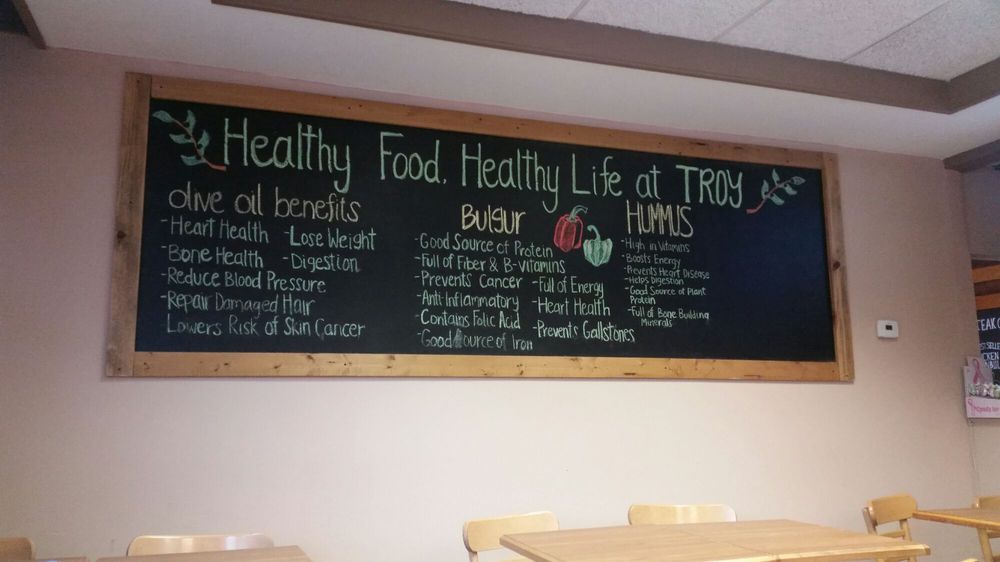 Healthy Food, Healthy Life at TROY
olive oil benefits
-Heart Health -Lose Weight
-Bone Health -Digestion
-Reduce Blood Pressure
-Repair Damaged Hair
-Lowers Risk of Skin Cancer
Bulgur
-Good Source of Protein
-Full of Fiber & B-vitamins
-Prevents Cancer -Full of Energy
-Anti-Inflammatory -Heart Health
-Contains Folic Acid -Prevents Gallstones
-Good Source of Iron
HUMMUS
-High in Vitamins
-Boosts Energy
-Prevents Heart Disease
-Helps Digestion
-Good Source of Plant
Protein
-Full of Bone Building
Minerals